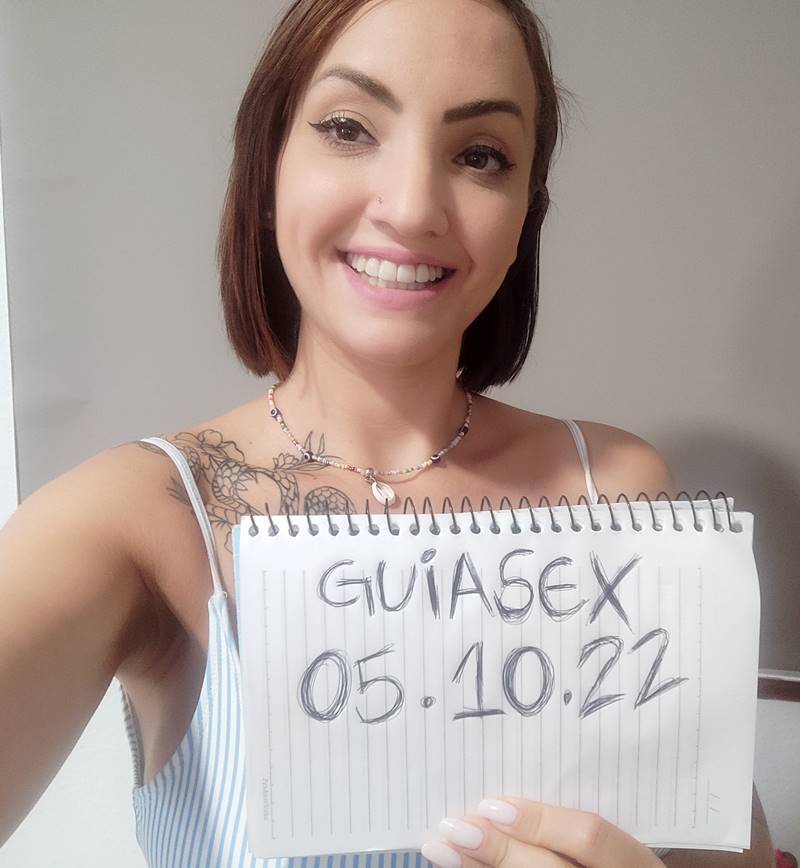 GUiASEX
05.10.22